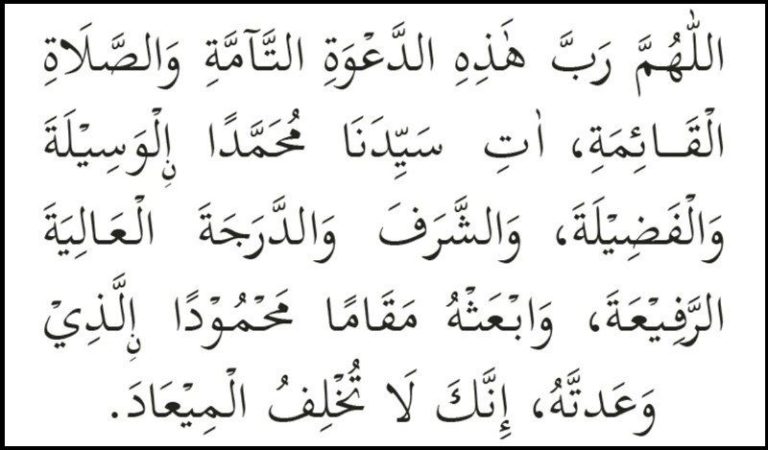 اللّٰهُمَّ رَبَّ هٰذِهِ الدَّعْوَةِ التَّآمَّةِ وَالصَّلَاةِ
الْقَـائِمَةِ، اٰتِ سَيِّدَنَا مُحَمَّدًا اِۨلْوَسِيْلَةَ
وَالْفَضِيْلَةَ، وَالشَّرَفَ وَالدَّرَجَةَ الْعَالِيَةَ
الرَّفِيْعَةَ، وَابْعَثْهُ مَقَامًا مَحْمُوْدًا اِۨلَّذِيْ
وَعَدتَّهُ، إِنَّكَ لَا تُخْلِفُ الْمِيْعَادَ.